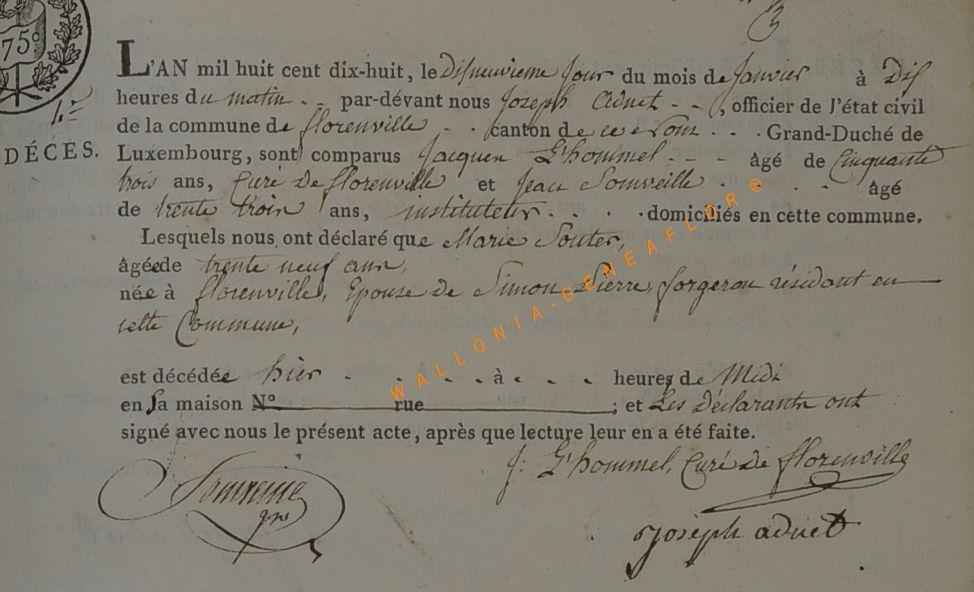 75c
L'AN mil huit cent dix-huit, le Disneuvieme Jour du mois de Janvier à Dix
heures du matin. - par-dévant nous Joseph Adnet - - , officier de l'état civil
de la commune de florenville . . canton de ce Nom . . . Grand-Duché de
DÉCES. Luxembourg, sont comparus Jacques L'hommel - - - âgé de Cinquante
trois ans, Curé De florenville et Jean Somveille . . . . âgé
de trente trois ans, instituteur . . . . domiciliés en cette commune.
Lesquels nous ont déclaré que Marie Souter,
âgée de trente neuf ans,
née à florenville, Epouse de Simon Pierre, forgeron résidant en
cette Commune,
est décédée hier . . . . à . . . heures de Midi
en sa maison N° rue ; et Les Déclarants ont
signé avec nous le présent acte, après que lecture leur en a été faite.
J: L'hommel, Curé De florenville
Somveille
Joseph adnet
WALLONIA-GENEAFLOR ©